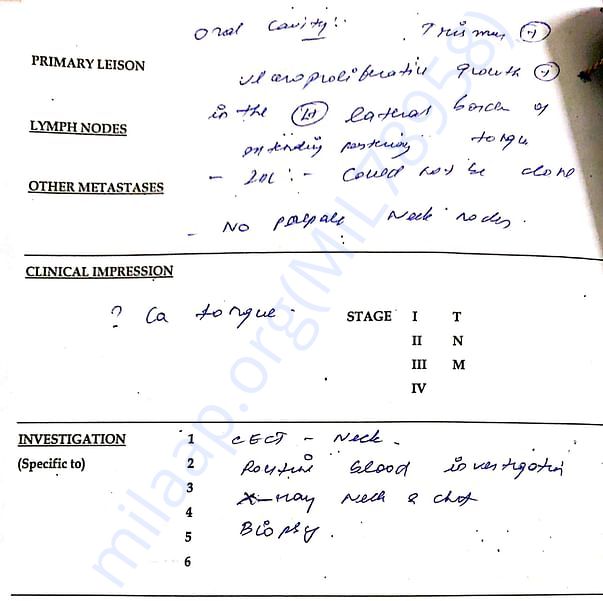 Oral Cavity:- Trismus (+)
PRIMARY LEISON
ulceroproliferative growth (+)
in the (Lt) lateral border of
LYMPH NODES
extending posteriorly tongue
- IDL :- Could not be done
OTHER METASTASES
- No palpable Neck nodes.
CLINICAL IMPRESSION
? Ca tongue.
STAGE I T
II N
III M
IV
INVESTIGATION
(Specific to)
1 CECT - Neck.
2 Routine blood investigation
3 X-ray Neck & chest
4
5 Biopsy.
6
milaap.org(MIL78958)